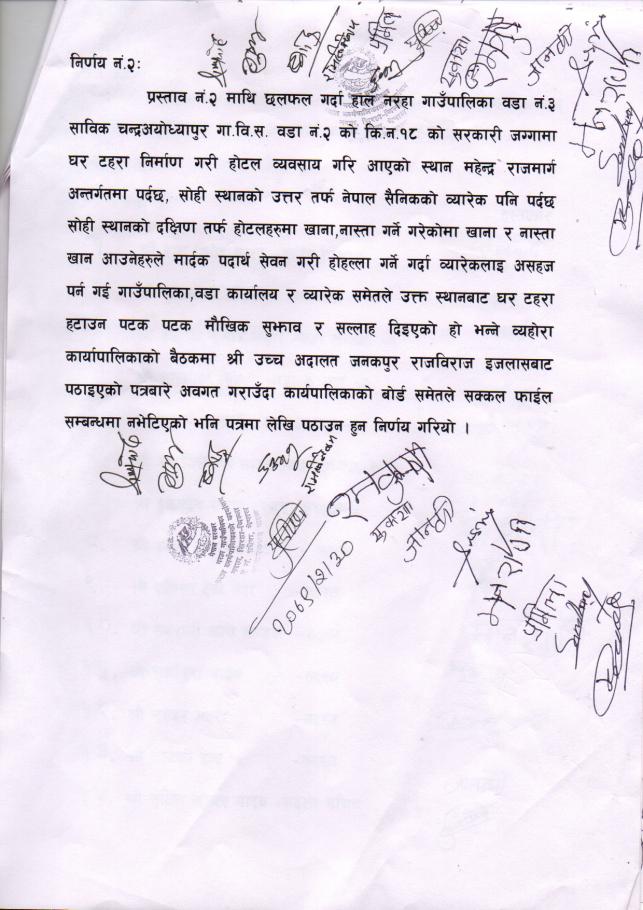 निर्णय नं.२ः
प्रस्ताव नं.२ माथि छलफल गर्दा हाल नरहा गाउँपालिका वडा नं.३
साविक चन्द्रअयोध्यापुर गा.वि.स. वडा नं.२ को कि.न.१८ को सरकारी जग्गामा
घर टहरा निर्माण गरी होटल व्यवसाय गरि आएको स्थान महेन्द्र राजमार्ग
अन्तर्गतमा पर्दछ, सोही स्थानको उत्तर तर्फ नेपाल सैनिकको व्यारेक पनि पर्दछ
सोही स्थानको दक्षिण तर्फ होटलहरुमा खाना,नास्ता गर्ने गरेकोमा खाना र नास्ता
खान आउनेहरुले मार्दक पदार्थ सेवन गरी होहल्ला गर्ने गर्दा व्यारेकलाइ असहज
पर्न गई गाउँपालिका,वडा कार्यालय र व्यारेक समेतले उक्त स्थानबाट घर टहरा
हटाउन पटक पटक मौखिक सुझाव र सल्लाह दिइएको हो भन्ने व्यहोरा
कार्यापालिकाको बैठकमा श्री उच्च अदालत जनकपुर राजविराज इजलासबाट
पठाइएको पत्रबारे अवगत गराउँदा कार्यपालिकाको बोर्ड समेतले सक्कल फाईल
सम्बन्धमा नभेटिएको भनि पत्रमा लेखि पठाउन हुन निर्णय गरियो ।
जानकी
प्रमिला